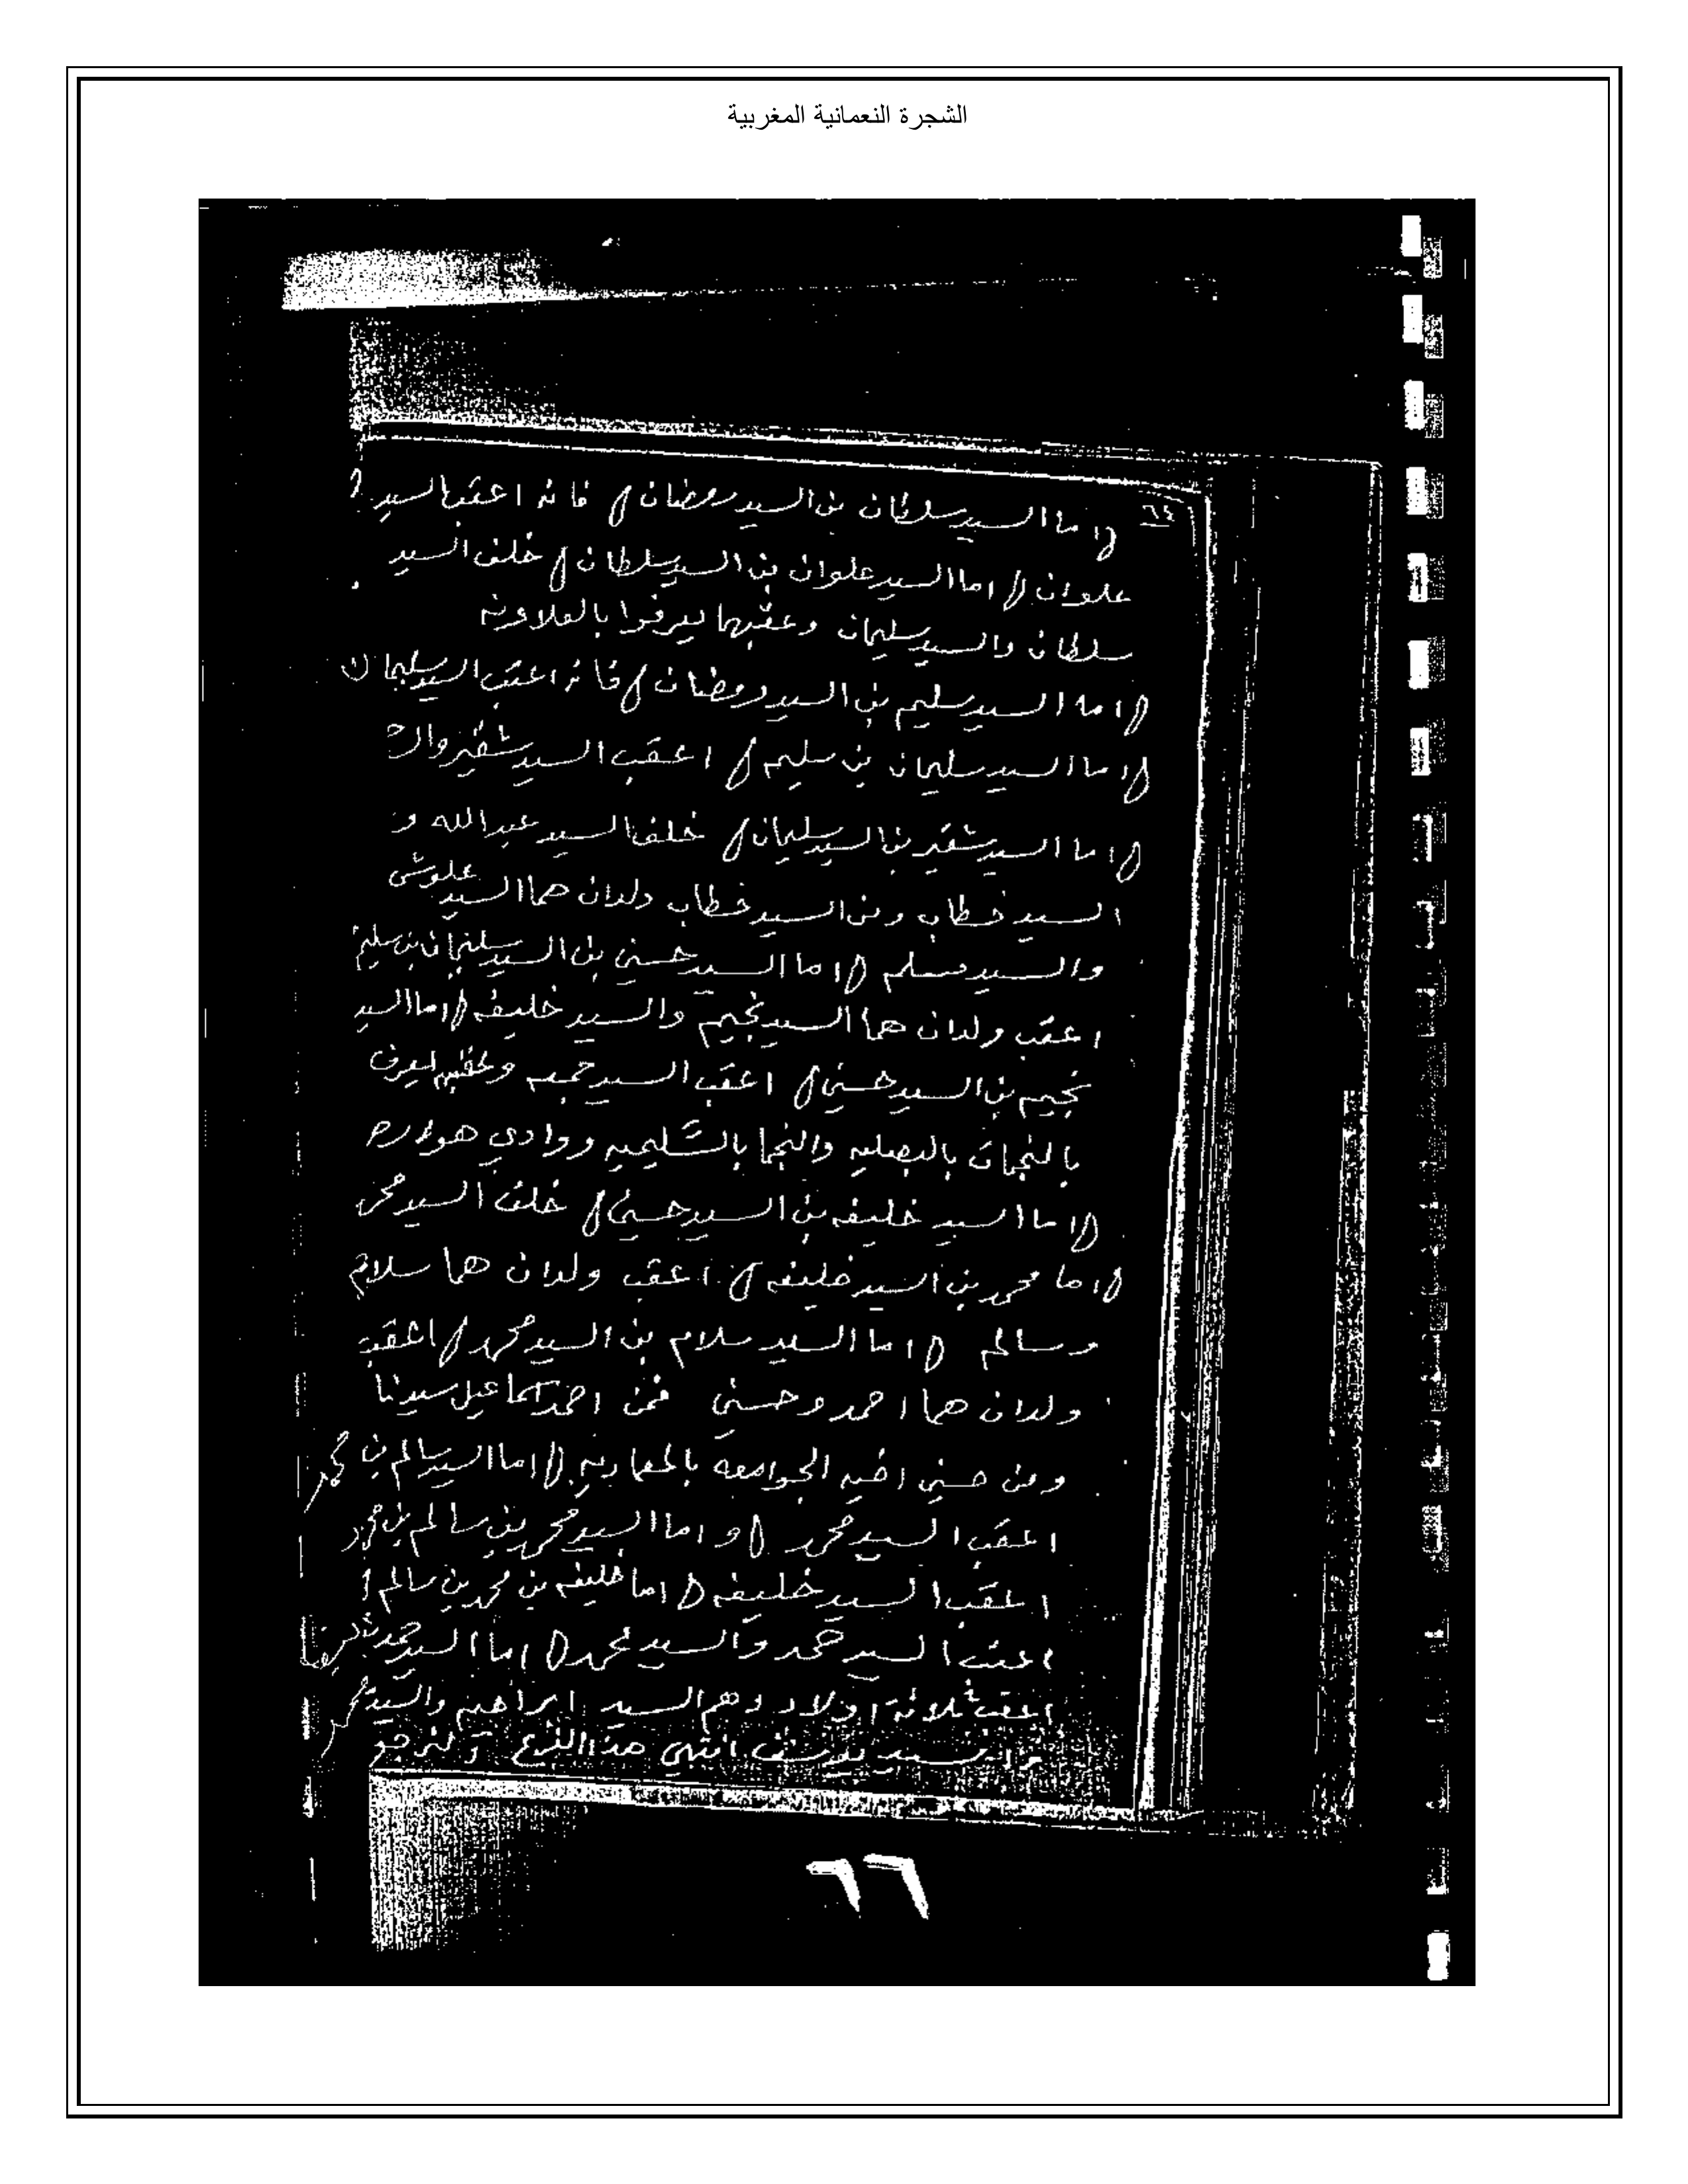 الشجرة النعمانية المغربية
٦٤
اما السيد سلطان بن السيد رمضان فانه اعقب السيد
علوان اما السيد علوان بن السيد سلطان خلف السيد
سلطان والسيد سليمان وعقبهما يعرفوا بالعلاونه
اما السيد سليم بن السيد رمضان فانه اعقب السيد سليمان
اما السيد سليمان بن سليم اعقب السيد شقير
اما السيد شقير بن السيد سليمان خلف السيد عبد الله و
السيد خطاب ومن السيد خطاب ولدان هما السيد علوش
والسيد مسلم اما السيد حسني بن السيد سليمان بن سليم
اعقب ولدان هما السيد نجيم والسيد خليفه اما السيد
نجيم بن السيد حسني اعقب السيد جمعه وعقبهم
بالنجمات بالبصليه والنجما بالشليميه ووادي هواره
اما السيد خليفه بن السيد حسني خلف السيد محمد
اما محمد بن السيد خليفه اعقب ولدان هما سلام
وسالم اما السيد سلام بن السيد محمد اعقب
ولدان هما احمد وحسني فمن احمد اسماعيل سيدنا
ومن حسني اخيه الجوامعه بالمعاديه اما السيد سالم بن محمد
اعقب السيد محمد واما السيد محمد بن سالم بن محمد
اعقب السيد خليفه اما خليفه بن محمد بن سالم
اعقب السيد حمد والسيد محمد اما السيد حمد
اعقب ثلاثة اولاد وهم السيد ابراهيم والسيد محمد
والسيد يوسف انتهى هذا الفرع ولنرجع
٦٦